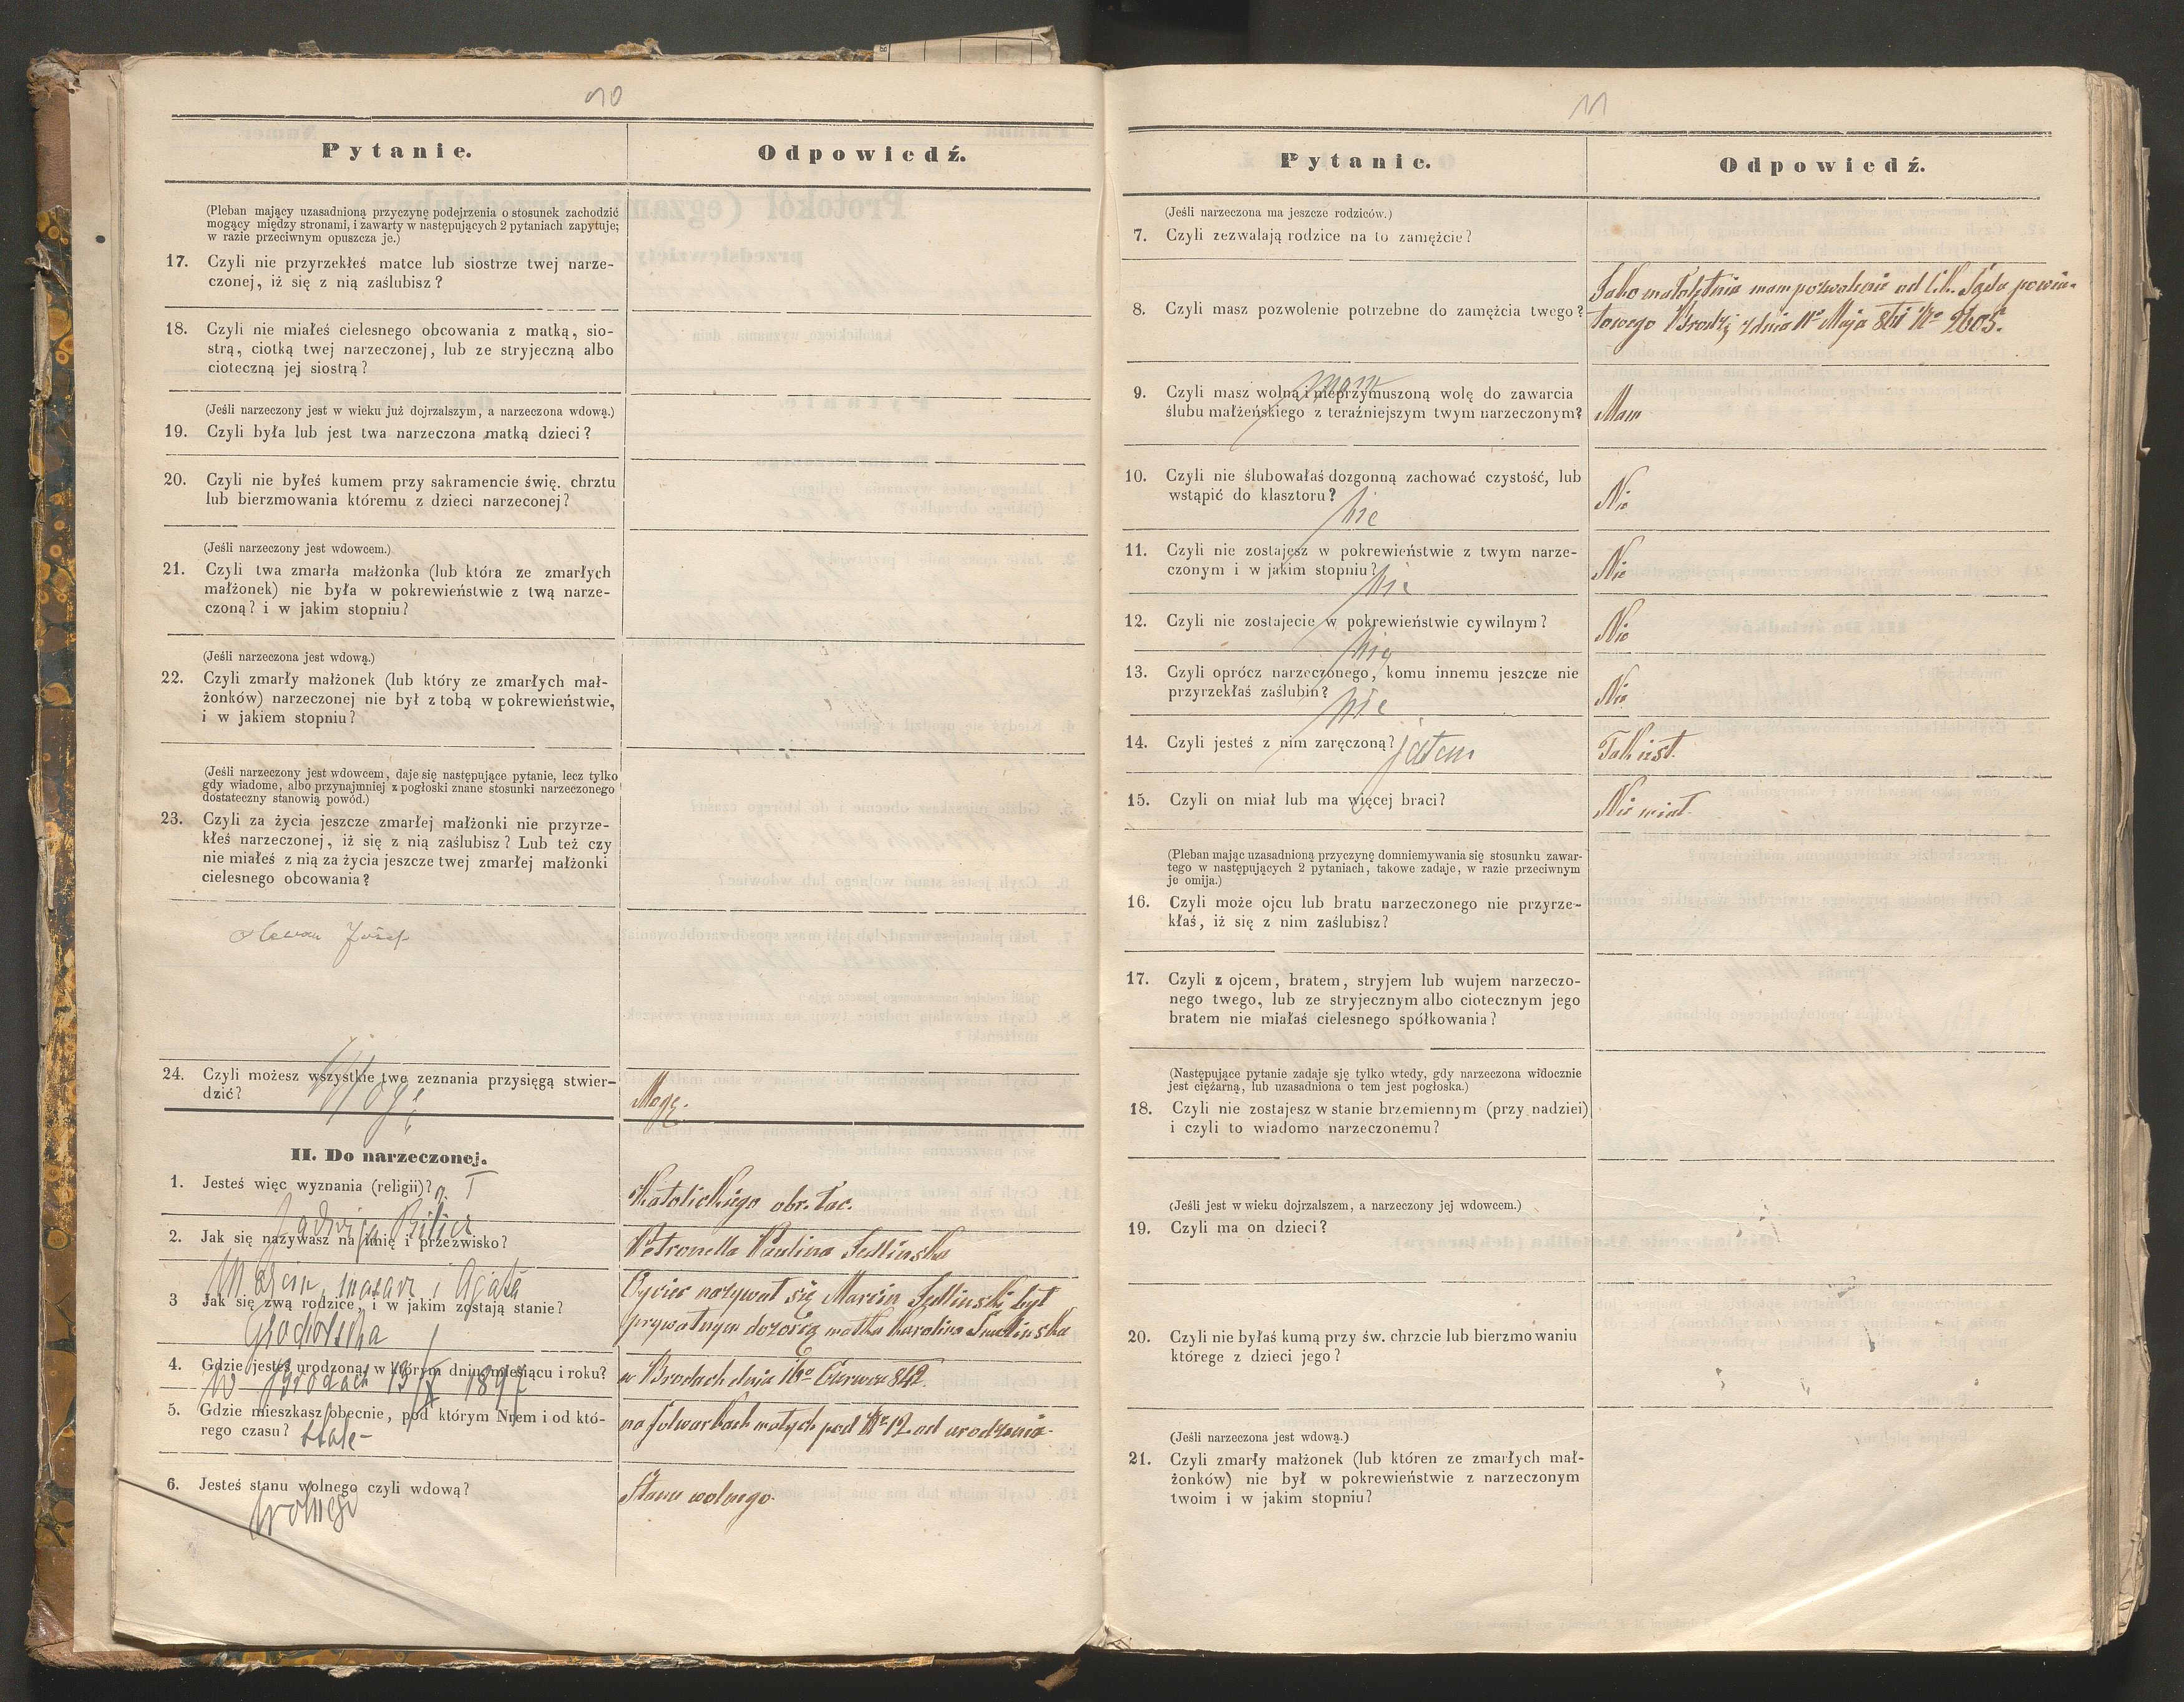 10
Pytanie.
Odpowiedź.
(Pleban mający uzasadnioną przyczynę podejrzenia o stosunek zachodzić
mogący między stronami, i zawarty w następujących 2 pytaniach zapytuje;
w razie przeciwnym opuszcza je.)
17. Czyli nie przyrzekłeś matce lub siostrze twej narze-
czonej, iż się z nią zaślubisz?
18. Czyli nie miałeś cielesnego obcowania z matką, sio-
strą, ciotką twej narzeczonej, lub ze stryjeczną albo
cioteczną jej siostrą?
(Jeśli narzeczony jest w wieku już dojrzalszym, a narzeczona wdową.)
19. Czyli była lub jest twa narzeczona matką dzieci?
20. Czyli nie byłeś kumem przy sakramencie świę. chrztu
lub bierzmowania któremu z dzieci narzeconej?
(Jeśli narzeczony jest wdowcem.)
21. Czyli twa zmarła małżonka (lub która ze zmarłych
małżonek) nie była w pokrewieństwie z twą narze-
czoną? i w jakim stopniu?
(Jeśli narzeczona jest wdową.)
22. Czyli zmarły małżonek (lub który ze zmarłych mał-
żonków) narzeczonej nie był z tobą w pokrewieństwie,
i w jakiem stopniu?
(Jeśli narzeczony jest wdowcem, daje się następujące pytanie, lecz tylko
gdy wiadome, albo przynajmniej z pogłoski znane stosunki narzeczonego
dostateczny stanowią powód.)
23. Czyli za życia jeszcze zmarłej małżonki nie przyrze-
kłeś narzeczonej, iż się z nią zaślubisz? Lub też czy
nie miałeś z nią za życia jeszcze twej zmarłej małżonki
cielesnego obcowania?
Józef
24. Czyli możesz wszystkie twe zeznania przysięgą stwier-
dzić?
Mogę
Mogę.
II. Do narzeczonej.
1. Jesteś więc wyznania (religii)?
Katolickiego obr. łac.
Jadwiga Bilicz
2. Jak się nazywasz na imię i przezwisko?
Petronella Paulina Sedlinska
Marcin, i Agata
3 Jak się zwą rodzice, i w jakim zostają stanie?
Ojciec nazywał się Marcin Sedlinski, był
prywatnym dozorcą matka Karolina Sedlinska
Grocholska
4. Gdzie jesteś urodzoną, w którym dniu, miesiącu i roku?
w Brodach 13/X 1897
w Brodach dnia 16o Czerwca 842.
5. Gdzie mieszkasz obecnie, pod którym Nrem i od któ-
rego czasu?
stale -
na folwarkach małych pod Nr 12 od urodzenia.
6. Jesteś stanu wolnego czyli wdową?
wolnego
Stanu wolnego.
11
Pytanie.
Odpowiedź.
(Jeśli narzeczona ma jeszcze rodziców.)
7. Czyli zezwalają rodzice na to zamężcie?
8. Czyli masz pozwolenie potrzebne do zamężcia twego?
Jako małoletnia mam pozwolenie od C.k. Sądu powia-
towego Brody z dnia 11o Maja 861 No 2605.
9. Czyli masz wolną i nieprzymuszoną wolę do zawarcia
ślubu małżeńskiego z teraźniejszym twym narzeczonym?
mam
Mam
10. Czyli nie ślubowałaś dozgonną zachować czystość, lub
wstąpić do klasztoru?
nie
Nie
11. Czyli nie zostajesz w pokrewieństwie z twym narze-
czonym i w jakim stopniu?
nie
Nie
12. Czyli nie zostajecie w pokrewieństwie cywilnym?
nie
Nie
13. Czyli oprócz narzeczonego, komu innemu jeszcze nie
przyrzekłaś zaślubin?
nie
Nie
14. Czyli jesteś z nim zaręczoną?
jestem
Tak jest.
15. Czyli on miał lub ma więcej braci?
Nie miał.
(Pleban mając uzasadnioną przyczynę domniemywania się stosunku zawar-
tego w następujących 2 pytaniach, takowe zadaje, w razie przeciwnym
je omija.)
16. Czyli może ojcu lub bratu narzeczonego nie przyrze-
kłaś, iż się z nim zaślubisz?
17. Czyli z ojcem, bratem, stryjem lub wujem narzeczo-
nego twego, lub ze stryjecznym albo ciotecznym jego
bratem nie miałaś cielesnego spółkowania?
(Następujące pytanie zadaje się tylko wtedy, gdy narzeczona widocznie
jest ciężarną, lub uzasadniona o tem jest pogłoska.)
18. Czyli nie zostajesz w stanie brzemiennym (przy nadziei)
i czyli to wiadomo narzeczonemu?
(Jeśli jest w wieku dojrzalszem, a narzeczony jej wdowcem.)
19. Czyli ma on dzieci?
20. Czyli nie byłaś kumą przy św. chrzcie lub bierzmowaniu
którege z dzieci jego?
(Jeśli narzeczona jest wdową.)
21. Czyli zmarły małżonek (lub któren ze zmarłych mał-
żonków) nie był w pokrewieństwie z narzeczonym
twoim i w jakim stopniu?